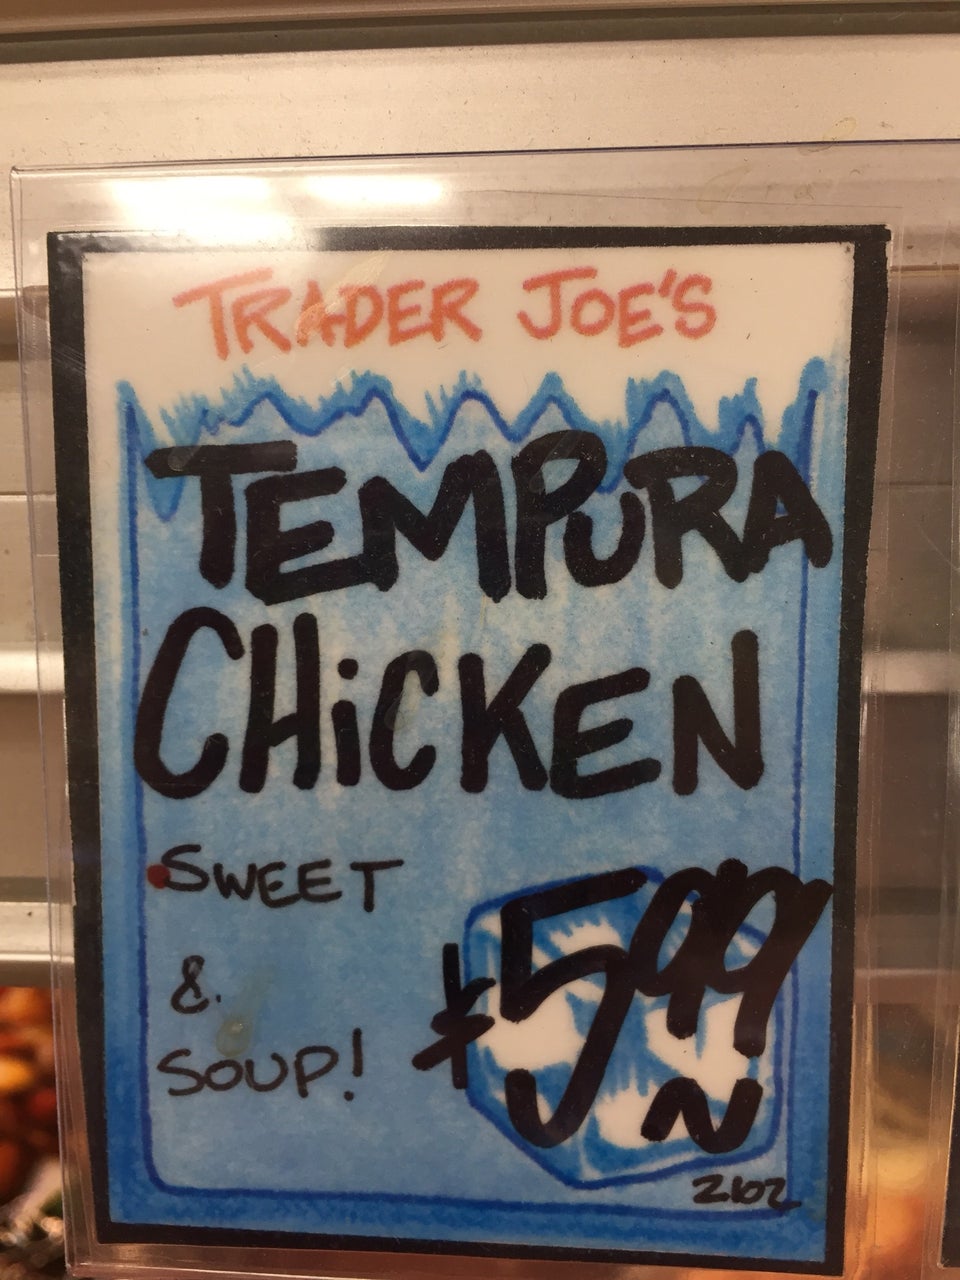 TRADER JOE'S
TEMPURA
CHiCKEN
SWEET
&
SOUP!
$5.99
21oz